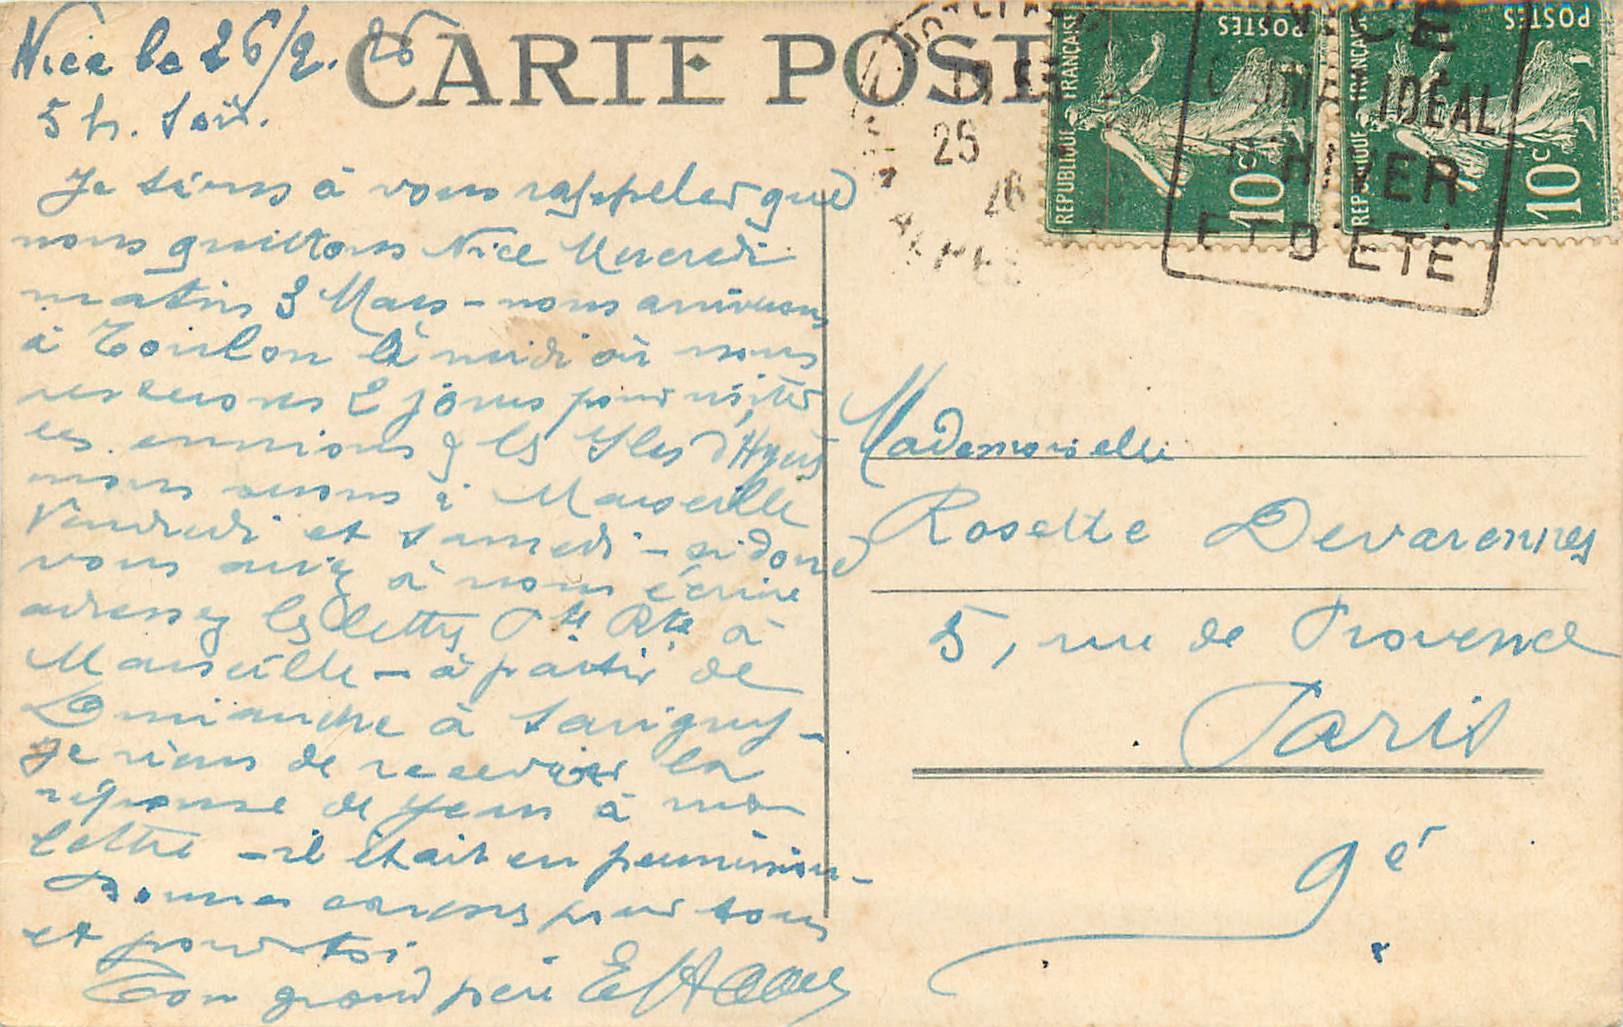 CARTE POSTALE
Nice le 26/2. 26
5 h. soir.
Je tiens à vous rappeler que
nous quittons Nice Mercredi
matin 3 Mars - nous arriverons
à Toulon à midi où nous
resterons 2 jours pour visiter
les environs & les Iles d'Hyères
nous serons à Marseille
Vendredi et Samedi - si donc
vous avez à nous écrire
adressez les lettres Pte Rte à
Marseille - à partir de
Dimanche à Savigny -
Je viens de recevoir la
réponse de Jean à ma
lettre - il était en permission -
Bonnes caresses pour tous
et pour toi
Ton grand père
25
26
ALPES
REPUBLIQUE FRANÇAISE
POSTES
10c
REPUBLIQUE FRANÇAISE
POSTES
10c
NICE
IDÉAL
D'HIVER
ET D'ÉTÉ
Mademoiselle
Rosette Devarennes
5, rue de Provence
Paris
9e